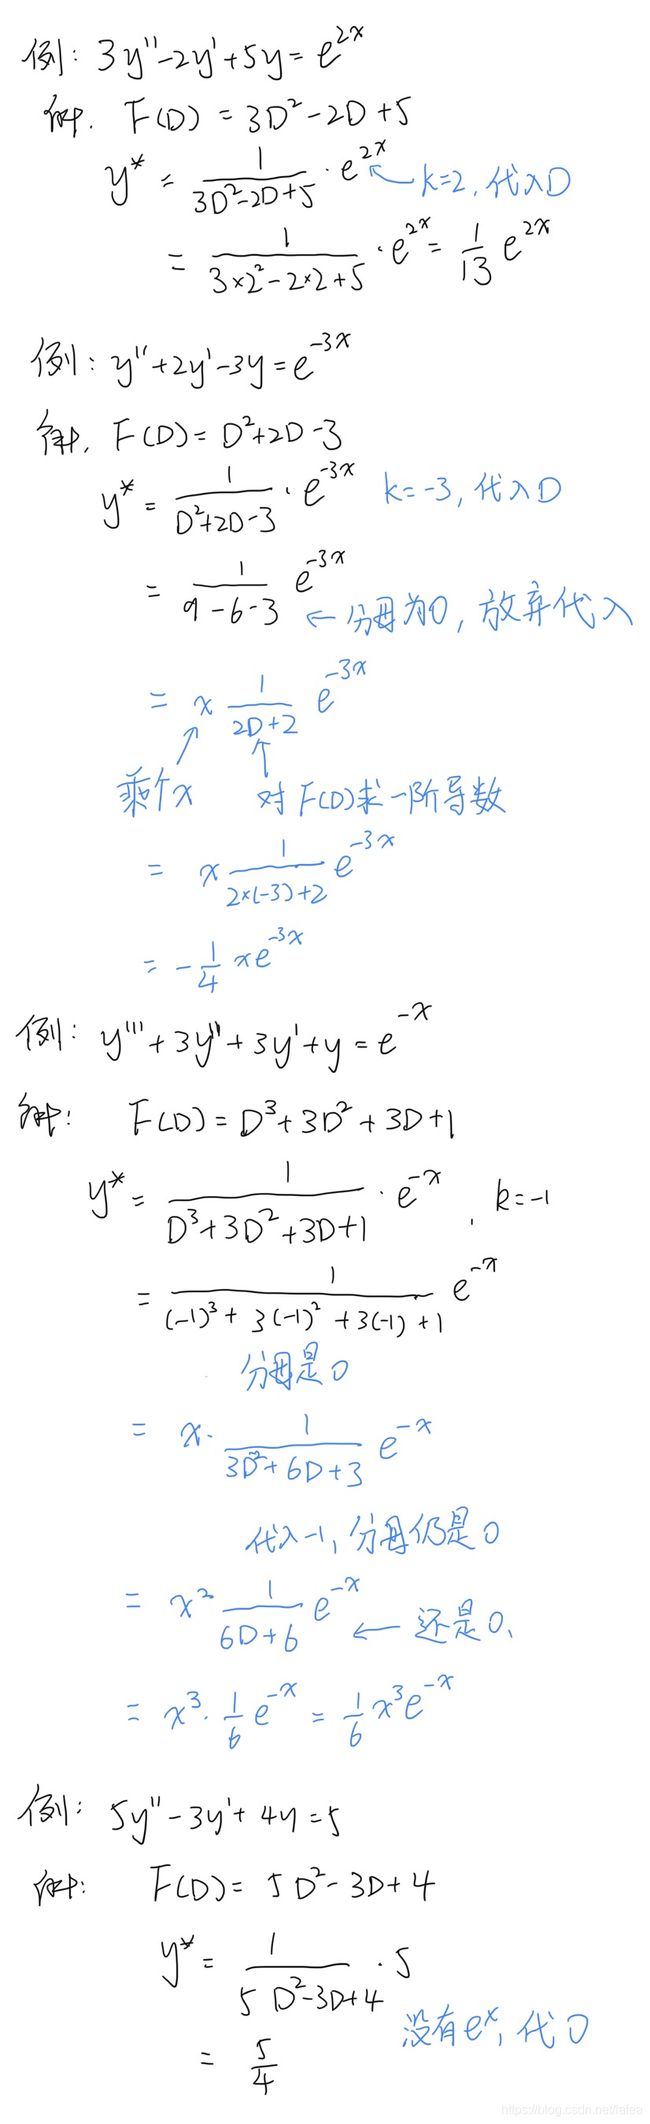 例: 3y''-2y'+5y=e^{2x}
解. F(D) = 3D²-2D+5
y* = \frac{1}{3D²-2D+5} · e^{2x} ← k=2, 代入D
= \frac{1}{3×2²-2×2+5} · e^{2x} = \frac{1}{13} e^{2x}
例: y''+2y'-3y=e^{-3x}
解. F(D)= D²+2D-3
y* = \frac{1}{D²+2D-3} · e^{-3x} k=-3, 代入D
= \frac{1}{9-6-3} e^{-3x} ← 分母为0, 放弃代入
= x \frac{1}{2D+2} e^{-3x}
乘个x 对F(D)求一阶导数
= x \frac{1}{2×(-3)+2} e^{-3x}
= -\frac{1}{4} xe^{-3x}
例: y'''+3y''+3y'+y=e^{-x}
解: F(D)=D³+3D²+3D+1
y* = \frac{1}{D³+3D²+3D+1} · e^{-x}, k=-1
= \frac{1}{(-1)³+3(-1)²+3(-1)+1} e^{-x}
分母是0
= x· \frac{1}{3D²+6D+3} e^{-x}
代入-1, 分母仍是0
= x² \frac{1}{6D+6} e^{-x} ← 还是0、
= x³· \frac{1}{6} e^{-x} = \frac{1}{6} x³e^{-x}
例: 5y''-3y'+4y=5
解: F(D)= 5D²-3D+4
y* = \frac{1}{5D²-3D+4} · 5
没有e^x, 代0
= \frac{5}{4}
https://blog.csdn.net/fafea